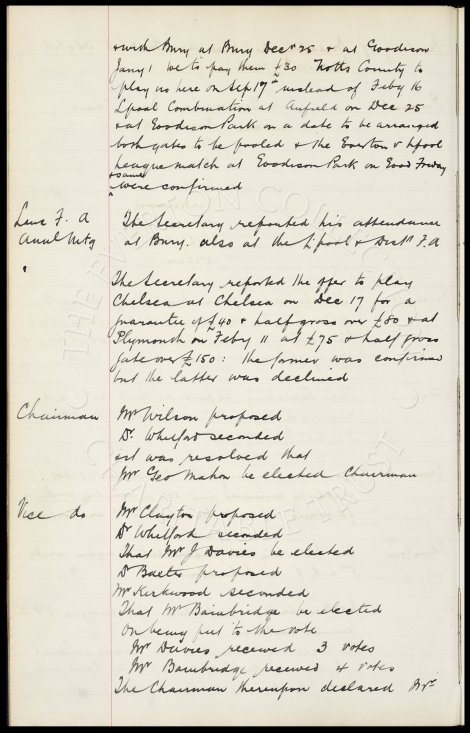 & with Bury at Bury Decr 25 & at Goodison
Jany 1 we to pay them £30 Notts County to
play us here on Sep 17th instead of Feby 16
Lpool Combination at Anfield on Dec 25
& at Goodison Park on a date to be arranged
both gates to be pooled & the Everton v Lpool
League match at Goodison Park on Good Friday
& same
were confirmed
Lanc F. A
Anul Mtg
The Secretary reported his attendance
at Bury. also at the L'pool & Distt F.A
The Secretary reported the offer to play
Chelsea at Chelsea on Dec 17 for a
guarantee of £40 & half gross over £80 & at
Plymouth on Feby 11 at £75 & half gross
gate over £150: the former was confirmed
but the latter was declined
Chairman
Mr Wilson proposed
Dr Whitford seconded
& it was resolved that
Mr Geo Mahon be elected Chairman
Vice do
Mr Clayton proposed
Dr Whitford seconded
That Mr J Davies be elected
Dr Baxter proposed
Mr Kirkwood seconded
That Mr Bainbridge be elected
On being put to the vote
Mr Davies received 3 votes
Mr Bainbridge received 4 votes
The Chairman thereupon declared Mr
THE EVERTON COLLECTION
CHARITABLE TRUST